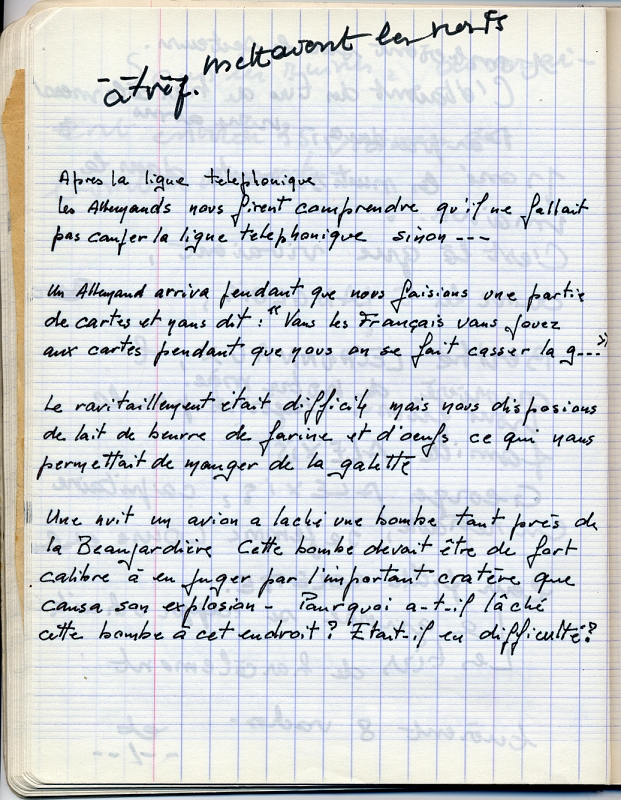 mettavent les nerfs
à trof.
Apres la ligne telephonique
les Allemands nous firent comprendre qu'il ne fallait
pas couper la ligne telephonique sinon ---
Un Allemand arriva pendant que nous faisions une partie
de cartes et nous dit : "Vous les Français vous jouez
aux cartes pendant que nous on se fait casser la g..."
Le ravitaillement était difficile mais nous disposions
de lait de beurre de farine et d'oeufs ce qui nous
permettait de manger de la galette
Une nuit un avion a laché une bombe tout près de
la Beaujardière Cette bombe devait être de fort
calibre à en juger par l'important cratère que
causa son explosion - Pourquoi a-t-il lâché
cette bombe à cet endroit? Etait-il en difficulté?